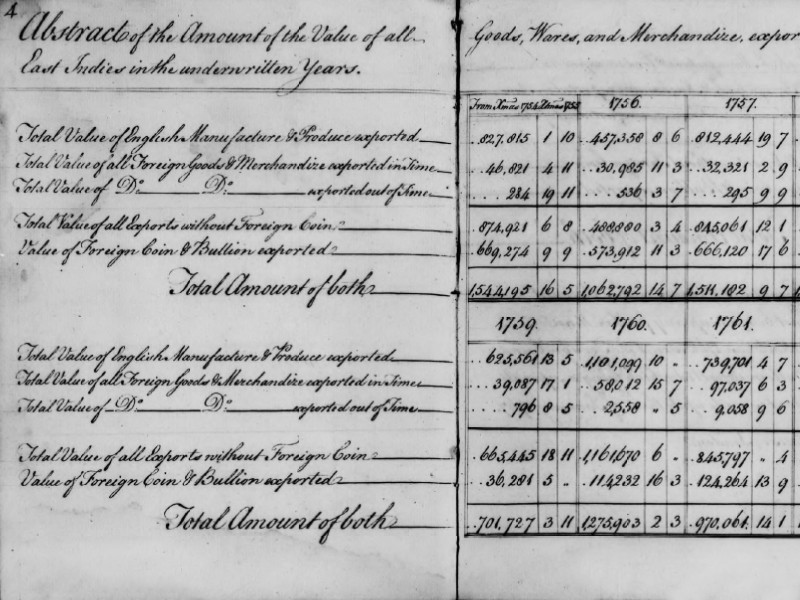 4
Abstract of the Amount of the Value of all Goods, Wares, and Merchandize, expor
East Indies in the underwritten Years.
From Xmas 1754 Xmas 1755 1756. 1757.
Total Value of English Manufacture & Produce exported 827,815 1 10 457,358 8 6 812,444 19 7
Total Value of all Foreign Goods & Merchandize exported in Time 46,821 4 11 30,985 11 3 32,321 2 9
Total Value of Do. Do. exported out of Time 284 19 11 536 3 7 295 9 9
Total Value of all Exports without Foreign Coin 874,921 6 8 488,880 3 4 845,061 12 1
Value of Foreign Coin & Bullion exported 669,274 9 9 573,912 11 3 666,120 17 6
Total Amount of both 1,544,195 16 5 1,062,792 14 7 1,511,182 9 7
1759. 1760. 1761.
Total Value of English Manufacture & Produce exported 625,561 13 5 1,101,099 10 " 739,701 4 7
Total Value of all Foreign Goods & Merchandize exported in Time 39,087 17 1 58,012 15 7 97,037 6 3
Total Value of Do. Do. exported out of Time 796 8 5 2,558 " 5 9,058 9 6
Total Value of all Exports without Foreign Coin 665,445 18 11 1,161,670 6 " 845,797 " 4
Value of Foreign Coin & Bullion exported 36,281 5 " 114,232 16 3 124,264 13 9
Total Amount of both 701,727 3 11 1,275,903 2 3 970,061 14 1